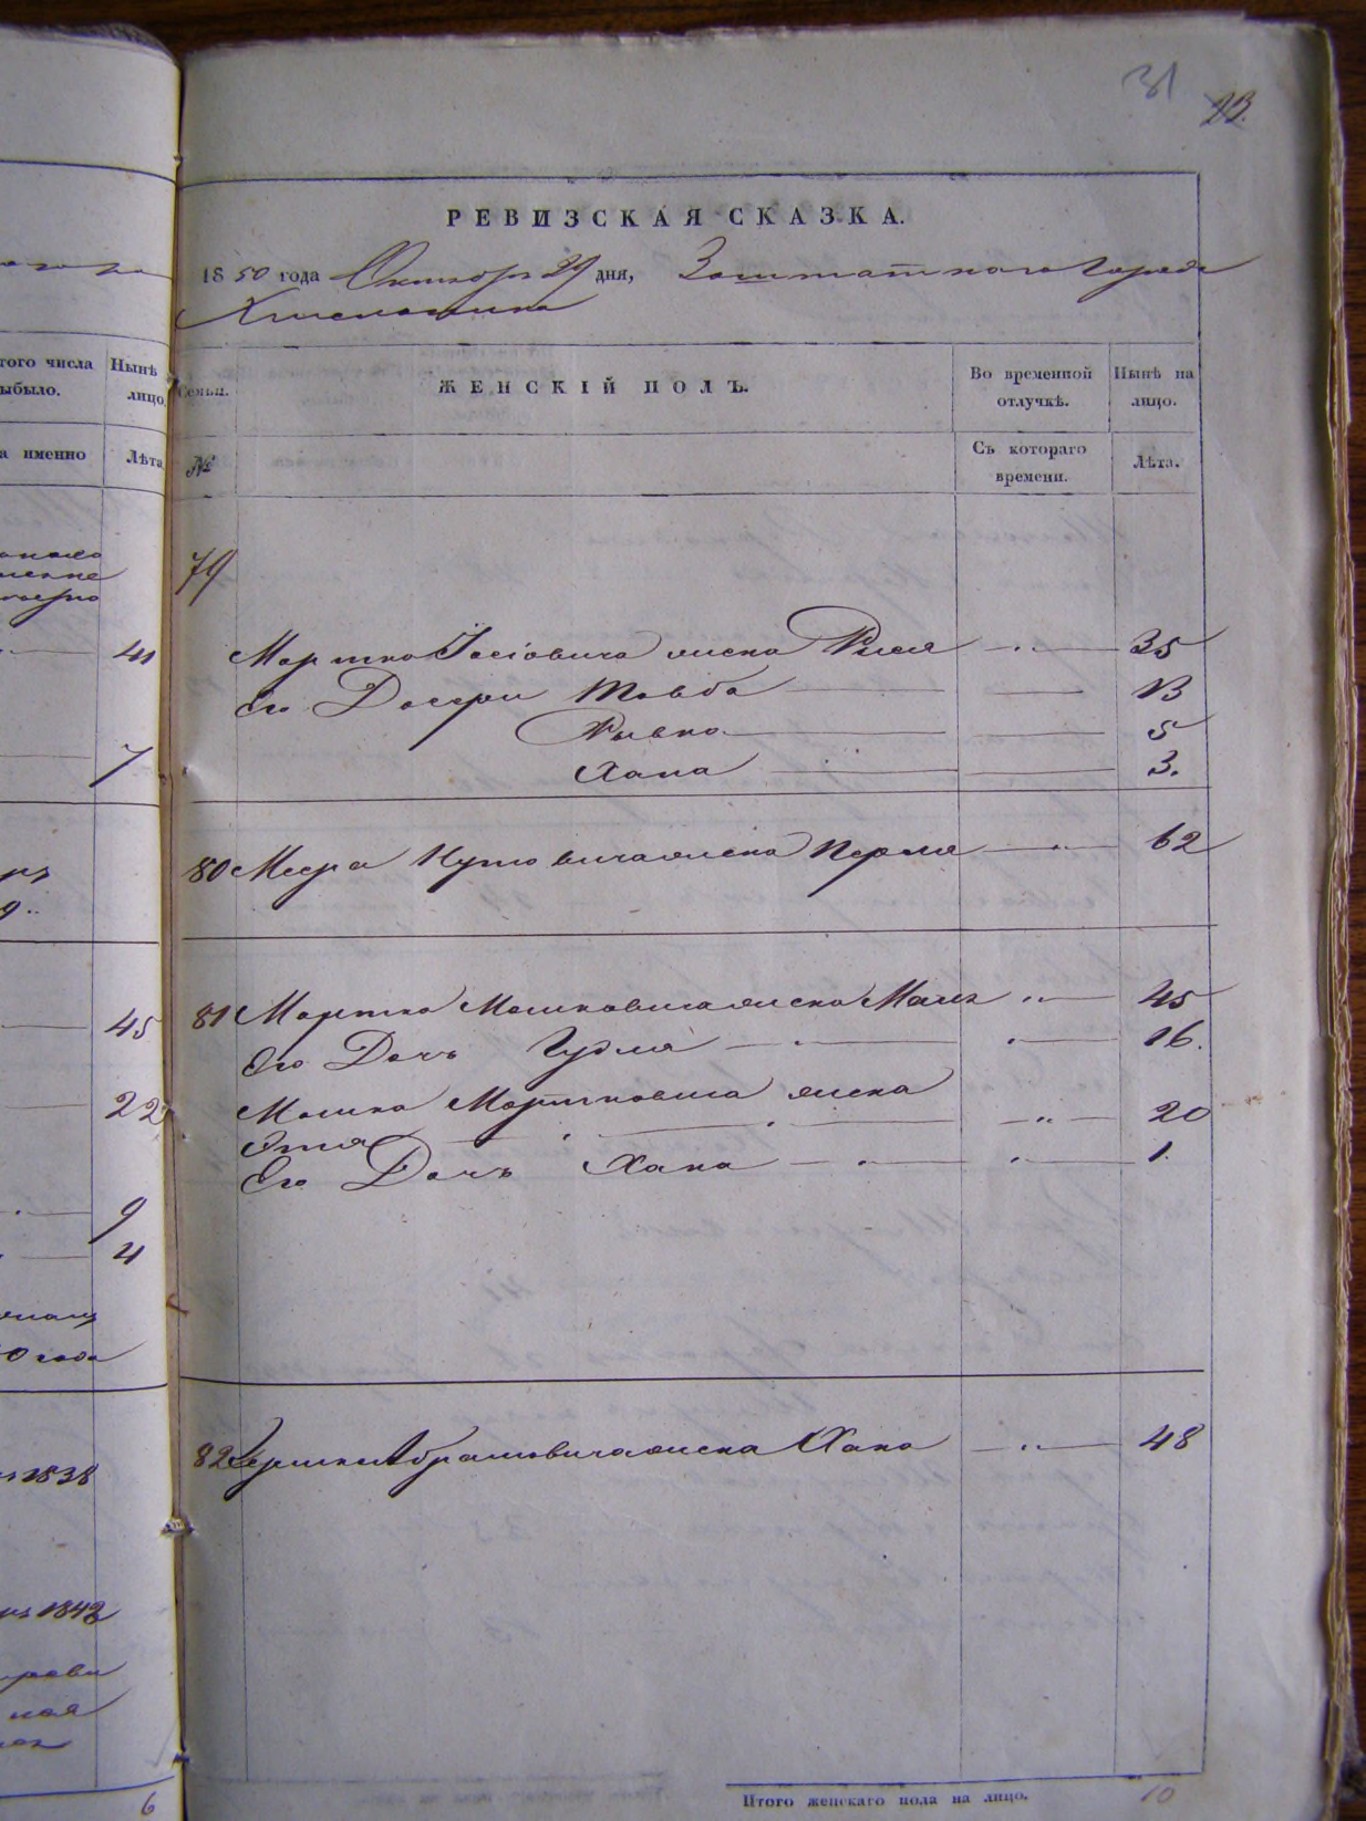 31
23.
РЕВИЗСКАЯ СКАЗКА.
1850 года Октября 27 дня, Заштатного Города
Хмельника
того числа
ыбыло.
Нынѣ
лицо
Семьи.
ЖЕНСКІЙ ПОЛЪ.
Во временной
отлучкѣ.
Нынѣ на
лицо.
а именно
Лѣта
№
Съ котораго
времени.
Лѣта.
79
Мортка Іосіовича жена Рися 35
Его Дочери Товба 13
Рывка 5
Хана 3.
80 Меера жена Перля 62
81 Мортка Мошковича жена Мали 45
Его Дочь Гудля 16.
Мошка Мортковича жена
Этля 20
Его Дочь Хана 1.
82 Абрамовича жена Хана 48
41
7
45
22
9
4
0 года
1838
1842
ная
6
Итого женскаго пола на лицо. 10